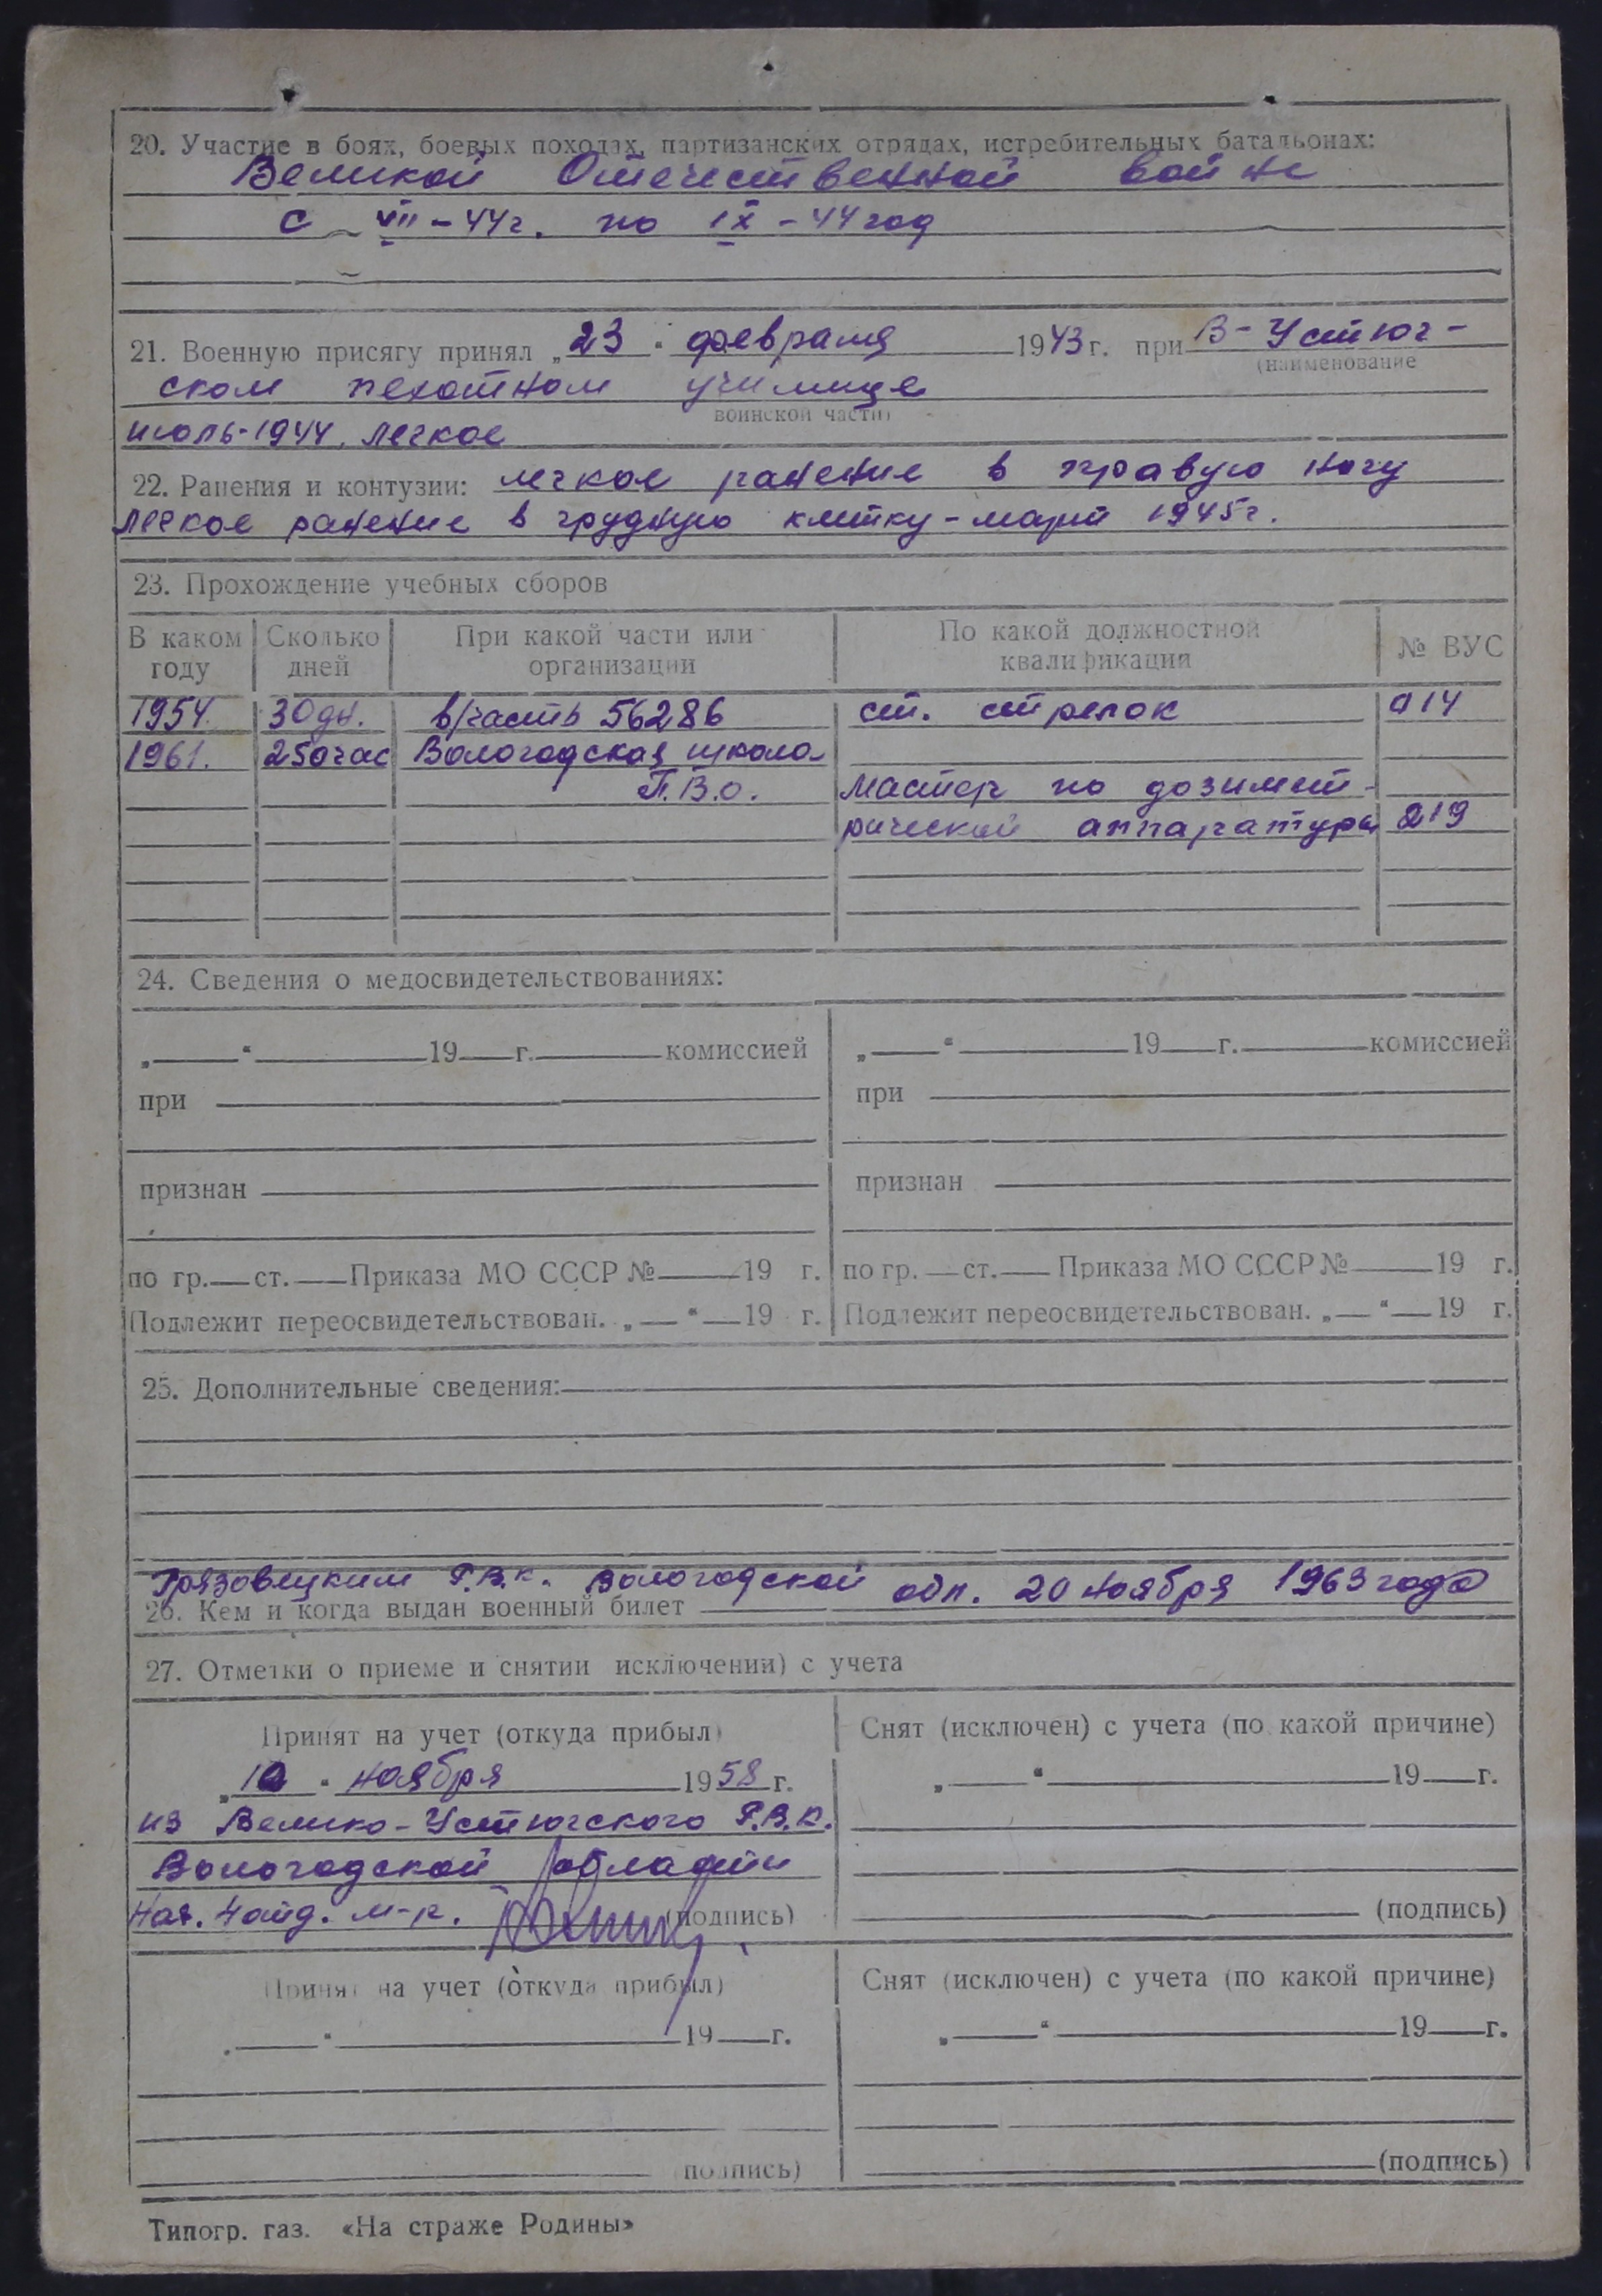 20. Участие в боях, боевых походах, партизанских отрядах, истребительных батальонах:
Великой Отечественной войне
с VII – 44 г. по IX – 44 год
21. Военную присягу принял „23“ февраля 1943 г. при В-Устюг-
(наименование
ском пехотном училище
воинской части)
июль-1944, легкое
22. Ранения и контузии: легкое ранение в правую ногу
легкое ранение в грудную клетку – март 1945 г.
23. Прохождение учебных сборов
В каком году Сколько дней При какой части или организации По какой должностной квалификации № ВУС
1954. 30 дн. в/часть 56286 ст. стрелок 914
1961. 250 час Вологодская школа
П.В.О. Мастер по дозимет-
рической аппаратуре 219
24. Сведения о медосвидетельствованиях:
„ “ 19 г. комиссией „ “ 19 г. комиссией
при при
признан признан
по гр. ст. Приказа МО СССР № 19 г. по гр. ст. Приказа МО СССР № 19 г.
Подлежит переосвидетельствован. „ “ 19 г. Подлежит переосвидетельствован. „ “ 19 г.
25. Дополнительные сведения:
Грязовецким Р.В.К. Вологодской обл. 20 ноября 1963 года
26. Кем и когда выдан военный билет
27. Отметки о приеме и снятии исключении) с учета
Принят на учет (откуда прибыл) Снят (исключен) с учета (по какой причине)
„ “ ноября 1958 г. „ “ 19 г.
из Велико-Устюгского Р.В.К.
Вологодской области
м-р. (подпись) (подпись)
Принят на учет (откуда прибыл) Снят (исключен) с учета (по какой причине)
„ “ 19 г. „ “ 19 г.
(подпись) (подпись)
Типогр. газ. «На страже Родины»